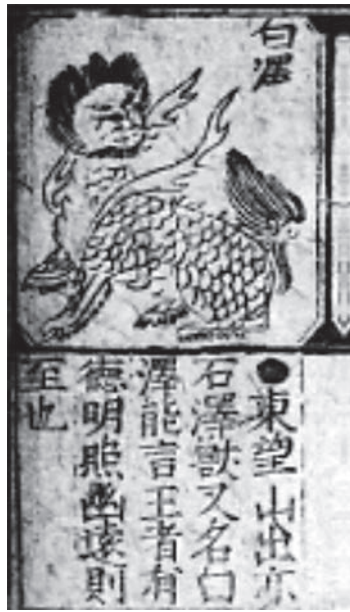 白澤
●東望山出亦
石澤獸又名白
澤能言王者有
德明照幽遠則
至也